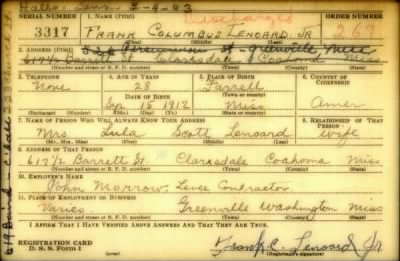 Halls, Tenn. 3-4-43
Discharged
SERIAL NUMBER 1. NAME (Print) ORDER NUMBER
3317 FRANK COLUMBUS LENOARD, JR 267
2. ADDRESS (Print)
Greenville Miss
617½ Barrett St Clarksdale Coahoma Miss
3. TELEPHONE 4. AGE IN YEARS 5. PLACE OF BIRTH 6. COUNTRY OF CITIZENSHIP
None 28 Farrell
DATE OF BIRTH
Sep. 15 1912 Miss Amer
(Exchange) (Number) (Mo.) (Day) (Yr.) (State or country)
7. NAME OF PERSON WHO WILL ALWAYS KNOW YOUR ADDRESS 8. RELATIONSHIP OF THAT PERSON
Mrs. Lula Scott Lenoard Wife
(Mr., Mrs., Miss) (First) (Middle) (Last)
9. ADDRESS OF THAT PERSON
617½ Barrett St Clarksdale Coahoma Miss
(Number and street or R. F. D. number) (Town) (County) (State)
10. EMPLOYER'S NAME
John Morrow, Levee Contractor
11. PLACE OF EMPLOYMENT OR BUSINESS
Varies. Greenville Washington Miss
(Number and street or R. F. D. number) (Town) (County) (State)
I AFFIRM THAT I HAVE VERIFIED ABOVE ANSWERS AND THAT THEY ARE TRUE.
REGISTRATION CARD
D. S. S. Form 1
Frank C. Lenoard Jr
(Registrant's signature)